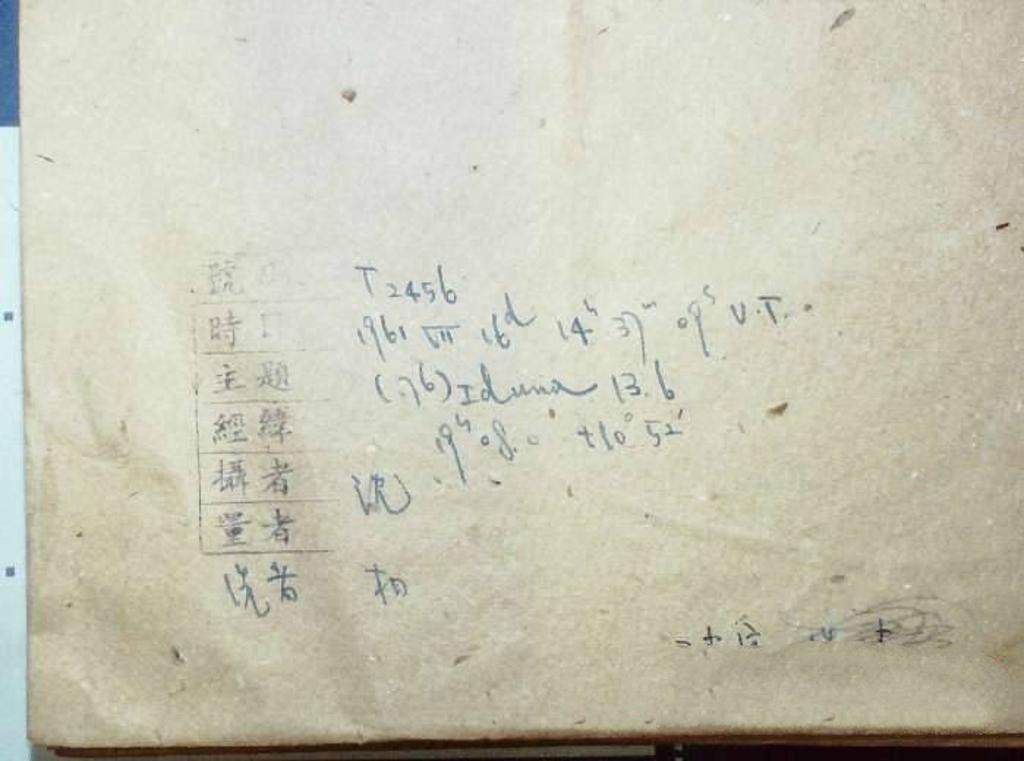 號 T 2456
時 1961 VII 16d 14h 37m 09s U.T.
主題 (176) Iduna 13.6
經緯 19h 08.0m +10° 52'
攝者 沈
量者
洗者